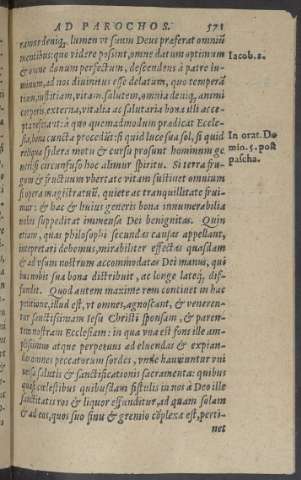 AD PAROCHOS. 571
ramꝰ deniq́; lumen vt suum Deus præferat omniũ
mentibus: que videre possint, omne datum optimum
Iacob. 1.
& omne donum perfectum, descendens à patre lu-
minum, ad nos diuinitus esse delatum, quo temperã
tiam, iustitiam, vitam, salutem, omnia deniq; animi
corporis, externa, vitalia ac salutaria bona illi acce-
pta referant: à quo quemadmodum prædicat Eccle-
sia, bona cuncta procedũt: si quid luce sua sol, si quid
In orat. Do
reliqua sidera motu & cursu prosunt hominum ge
min. 5. post
neri: si circunfuso hoc alimur spiritu. Si terra frugum
pascha.
& fructuum vbertate vitam sustinet omnium
si opera magistratuũ, quiete ac tranquillitate frui-
mur: & hæc & huius generis bona innumerabilia
nobis suppeditat immensa Dei benignitas. Quin
etiam, quas philosophi secundas causas appellant,
interpretari debemus, mirabiliter effectas quasdam
& ad vsum nostrum accommodatas Dei manus, qui
bus nobis sua bona distribuit, ac longe lateq́; dif-
fundit. Quod autem maxime rem continet in hac
petitione, illud est, vt omnes, agnoscant, & veneren-
tur sanctissimam Iesu Christi sponsam, & paren-
tem nostram Ecclesiam: in qua vna est fons ille am-
plissimus atque perpetuus ad eluendas & expian-
das omnes peccatorum sordes, vnde hauriuntur vni
uersa salutis & sanctificationis sacramenta: quibus
quasi cœlestibus quibusdam fistulis in nos à Deo ille
sanctitatis ros & liquor effunditur, ad quam solam
& ad eos, quos suo sinu & gremio cõplexa est, perti-
net